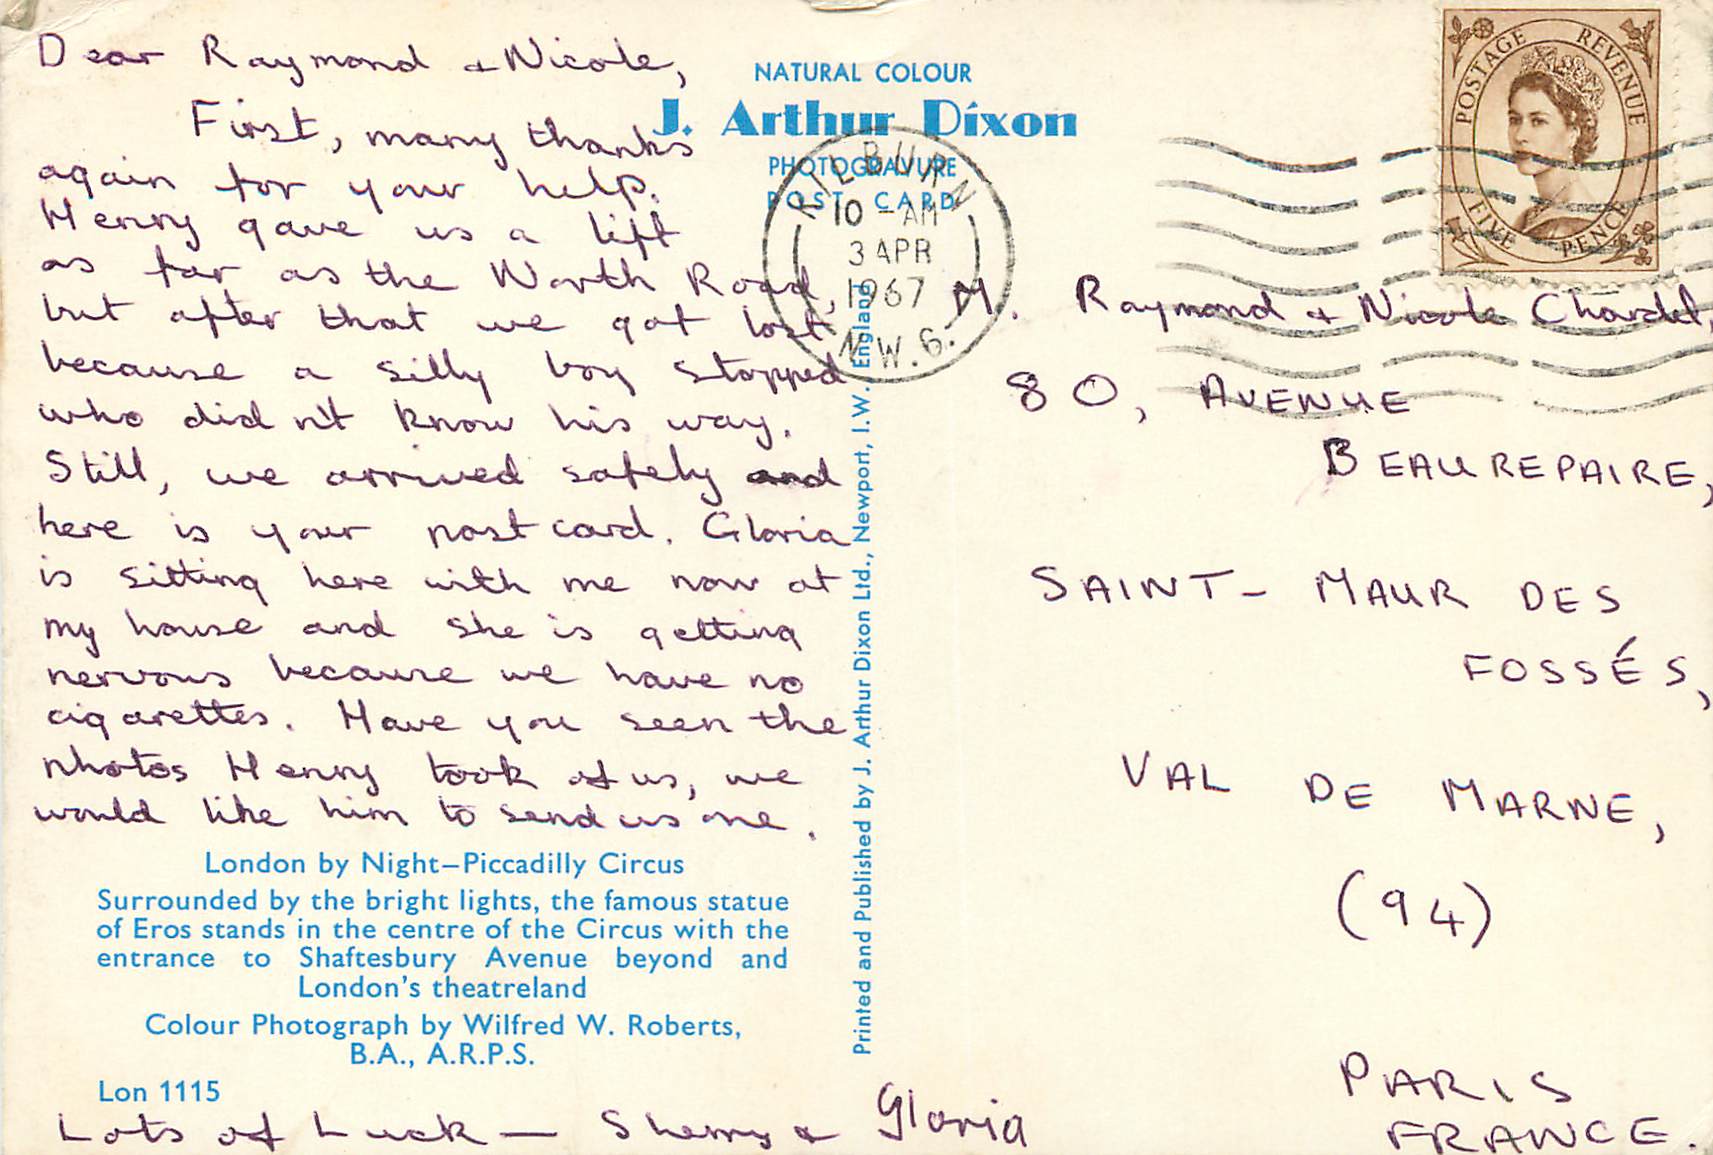 Dear Raymond & Nicole,
First, many thanks
again for your help.
Henry gave us a lift
as far as the North Road,
but after that we got lost
because a silly boy stopped
who didn't know his way.
Still, we arrived safely and
here is your postcard. Gloria
is sitting here with me now at
my house and she is getting
nervous because we have no
cigarettes. Have you seen the
photos Henry took of us, we
would like him to send us one.
London by Night–Piccadilly Circus
Surrounded by the bright lights, the famous statue
of Eros stands in the centre of the Circus with the
entrance to Shaftesbury Avenue beyond and
London's theatreland
Colour Photograph by Wilfred W. Roberts,
B.A., A.R.P.S.
Lon 1115
Lots of Luck — Sherry & Gloria
NATURAL COLOUR
J. Arthur Dixon
PHOTOGRAVURE
POST CARD
Printed and Published by J. Arthur Dixon Ltd., Newport, I.W. England
KILBURN
10 - AM
3 APR
1967
N.W.6.
POSTAGE REVENUE
FIVE PENCE
M. Raymond & Nicole
80, AVENUE
BEAUREPAIRE,
SAINT-MAUR DES
FOSSÉS,
VAL DE MARNE,
(94)
PARIS
FRANCE.